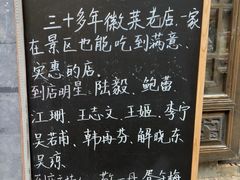 三十多年徽菜老店.一家
在景区也能吃到满意、
实惠的店.
到店明星、陆毅、鲍蕾、
江珊、王志文、王姬、李宁
吴若甫、韩再芬、解晓东、
吴琼、